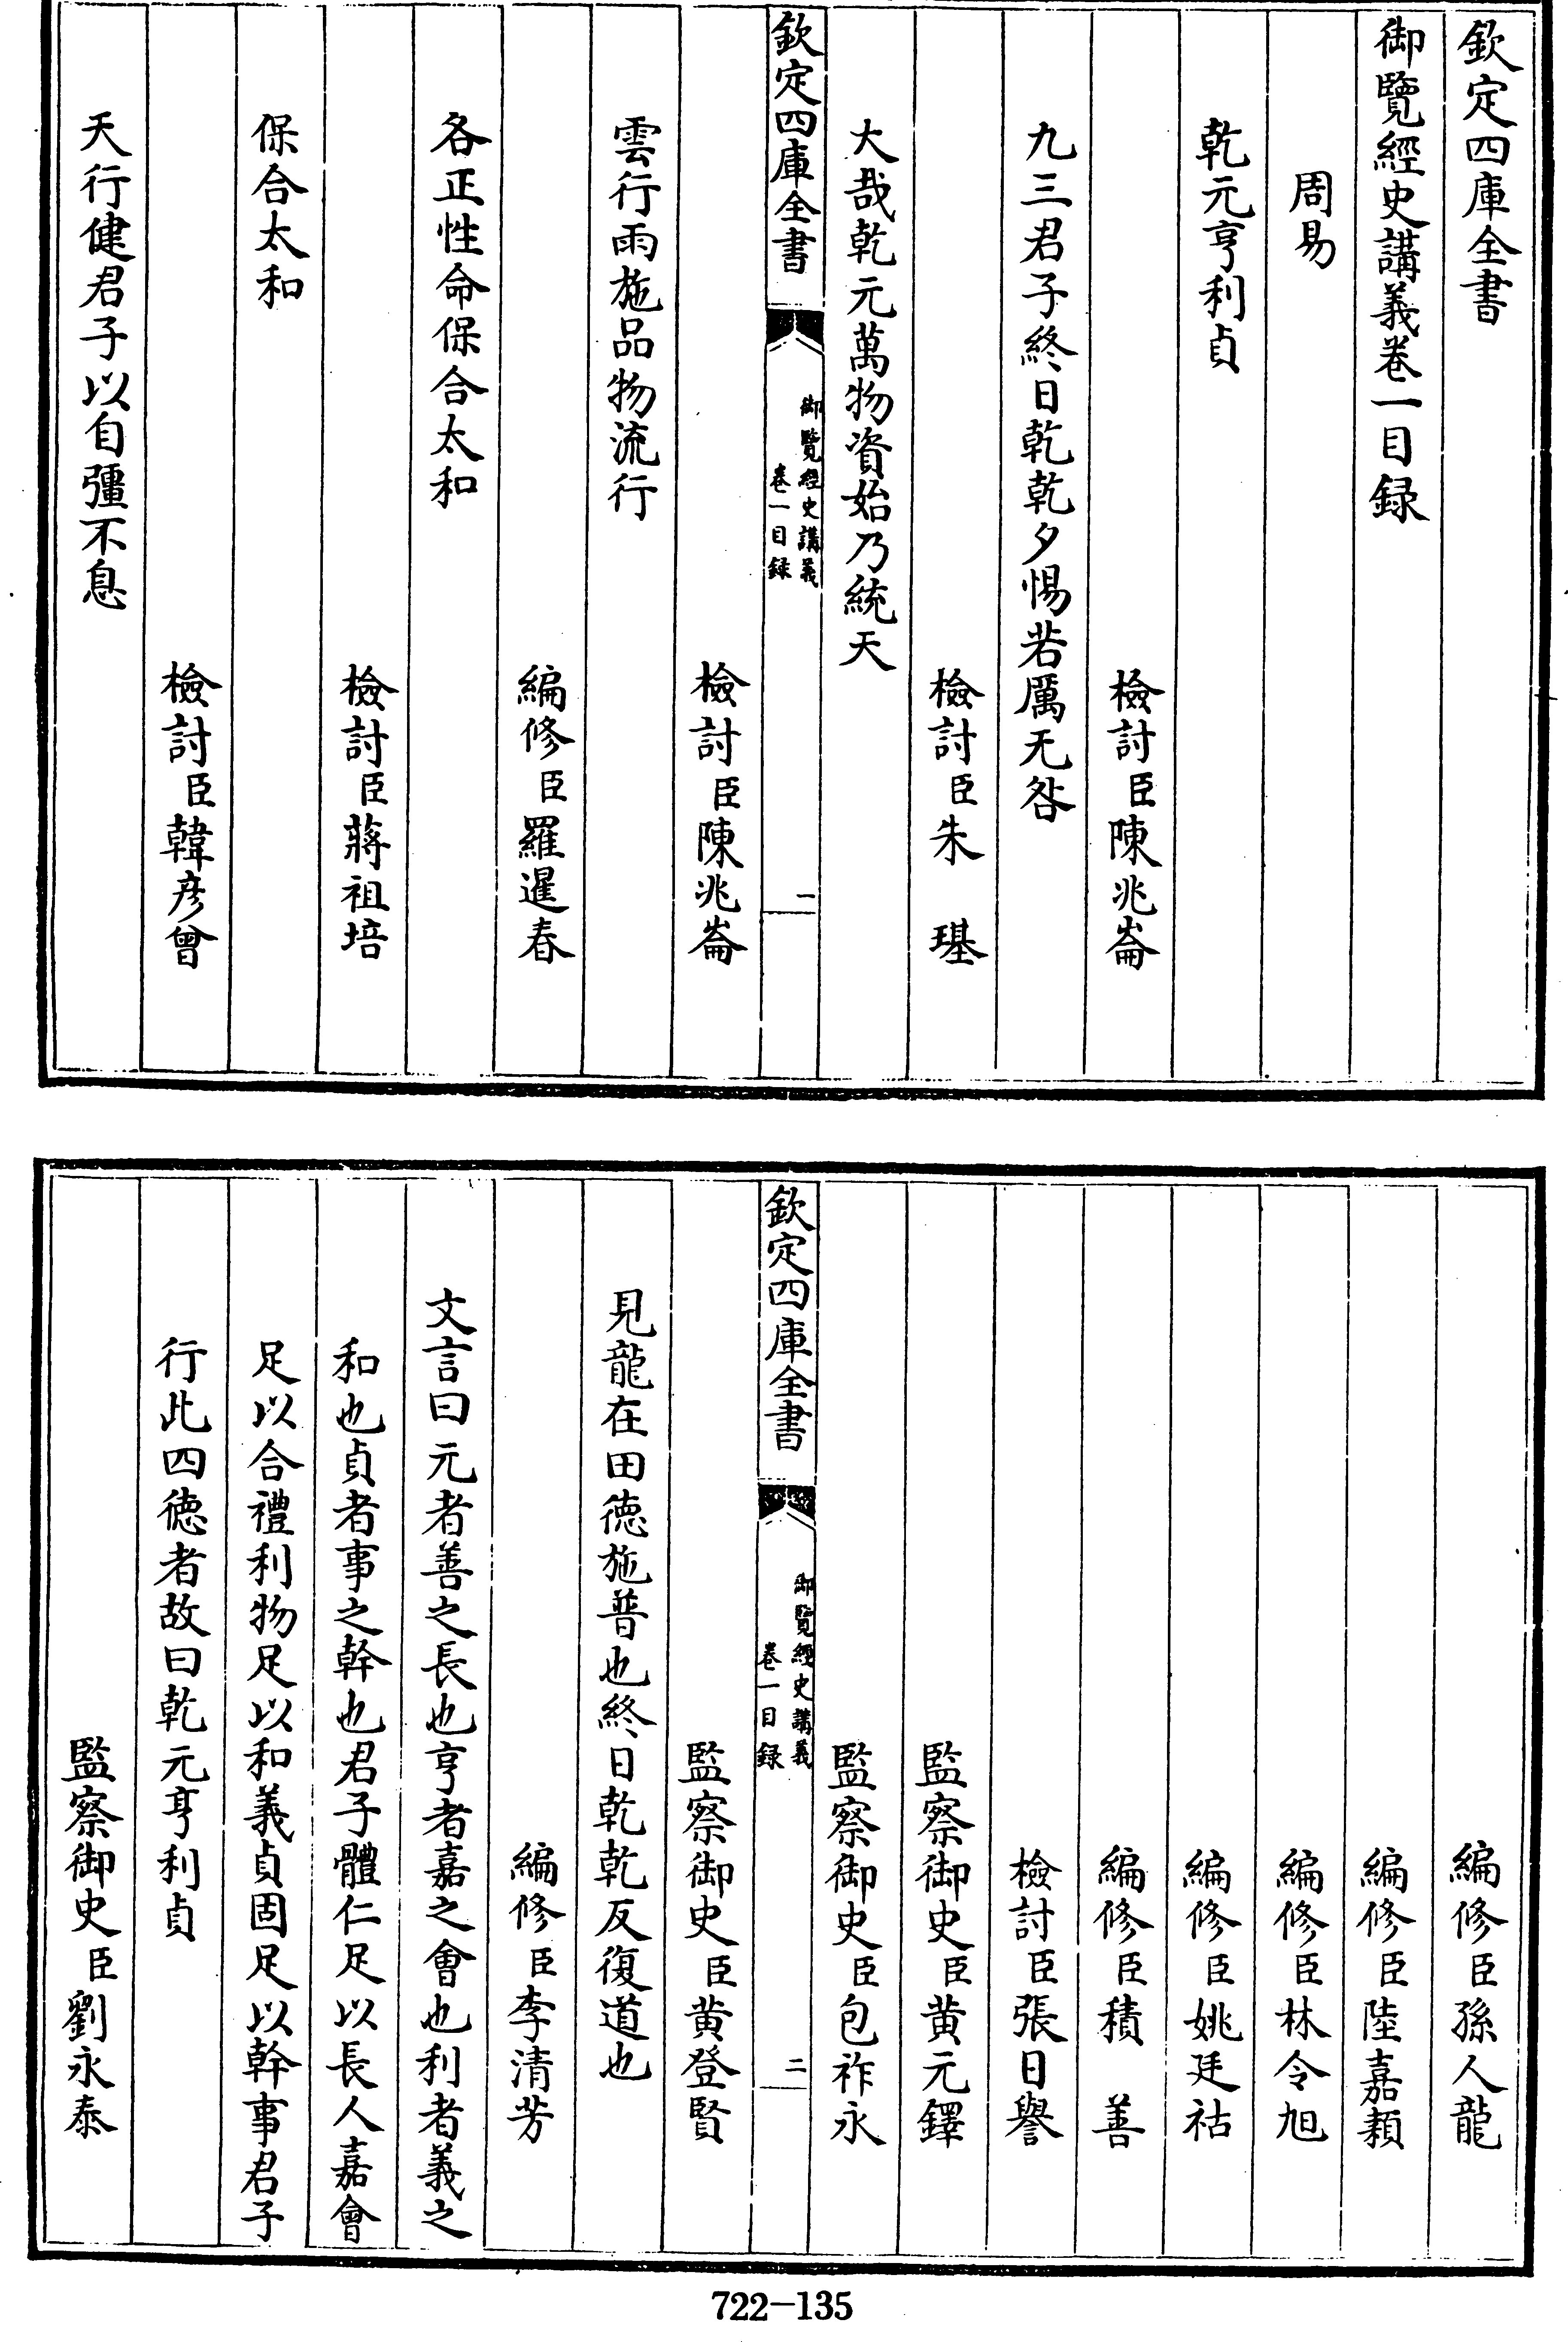 欽定四庫全書
御覽經史講義卷一目録
周易
乾元亨利貞
檢討臣陳兆崙
九三君子終日乾乾夕惕若厲无咎
檢討臣朱 琪
大哉乾元萬物資始乃統天
欽定四庫全書
御覽經史講義
卷一目録
一
檢討臣陳兆崙
雲行雨施品物流行
編修臣羅暹春
各正性命保合太和
檢討臣蔣祖培
保合太和
檢討臣韓彦曾
天行健君子以自彊不息
編修臣孫人龍
編修臣陸嘉頴
編修臣林令旭
編修臣姚廷祜
編修臣積 善
檢討臣張日譽
監察御史臣黄元鐸
監察御史臣包祚永
欽定四庫全書
御覽經史講義
卷一目録
二
監察御史臣黄登賢
見龍在田徳施普也終日乾乾反復道也
編修臣李清芳
文言曰元者善之長也亨者嘉之會也利者義之
和也貞者事之幹也君子體仁足以長人嘉會
足以合禮利物足以和義貞固足以幹事君子
行此四徳者故曰乾元亨利貞
監察御史臣劉永泰
722-135